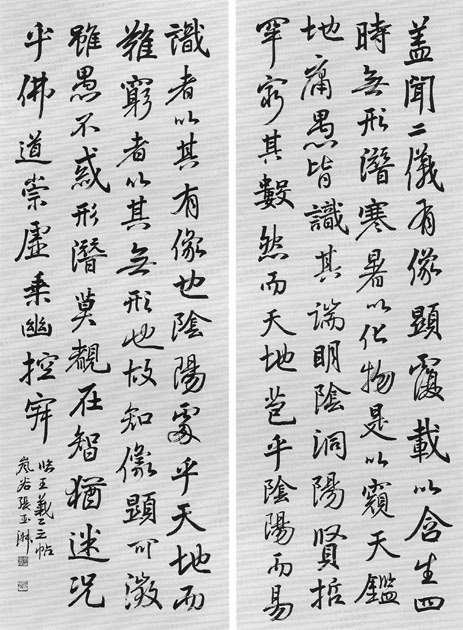 盖聞二儀有像顯覆載以含生四
時無形潛寒暑以化物是以窺天鑑
地庸愚皆識其端明陰洞陽賢哲
罕穷其數然而天地苞乎陰陽而易
識者以其有像也陰陽處乎天地而
難窮者以其無形也故知像顯可徵
雖愚不惑形潛莫覩在智猶迷况
乎佛道崇虛乘幽控寂
临王羲之帖
張亚